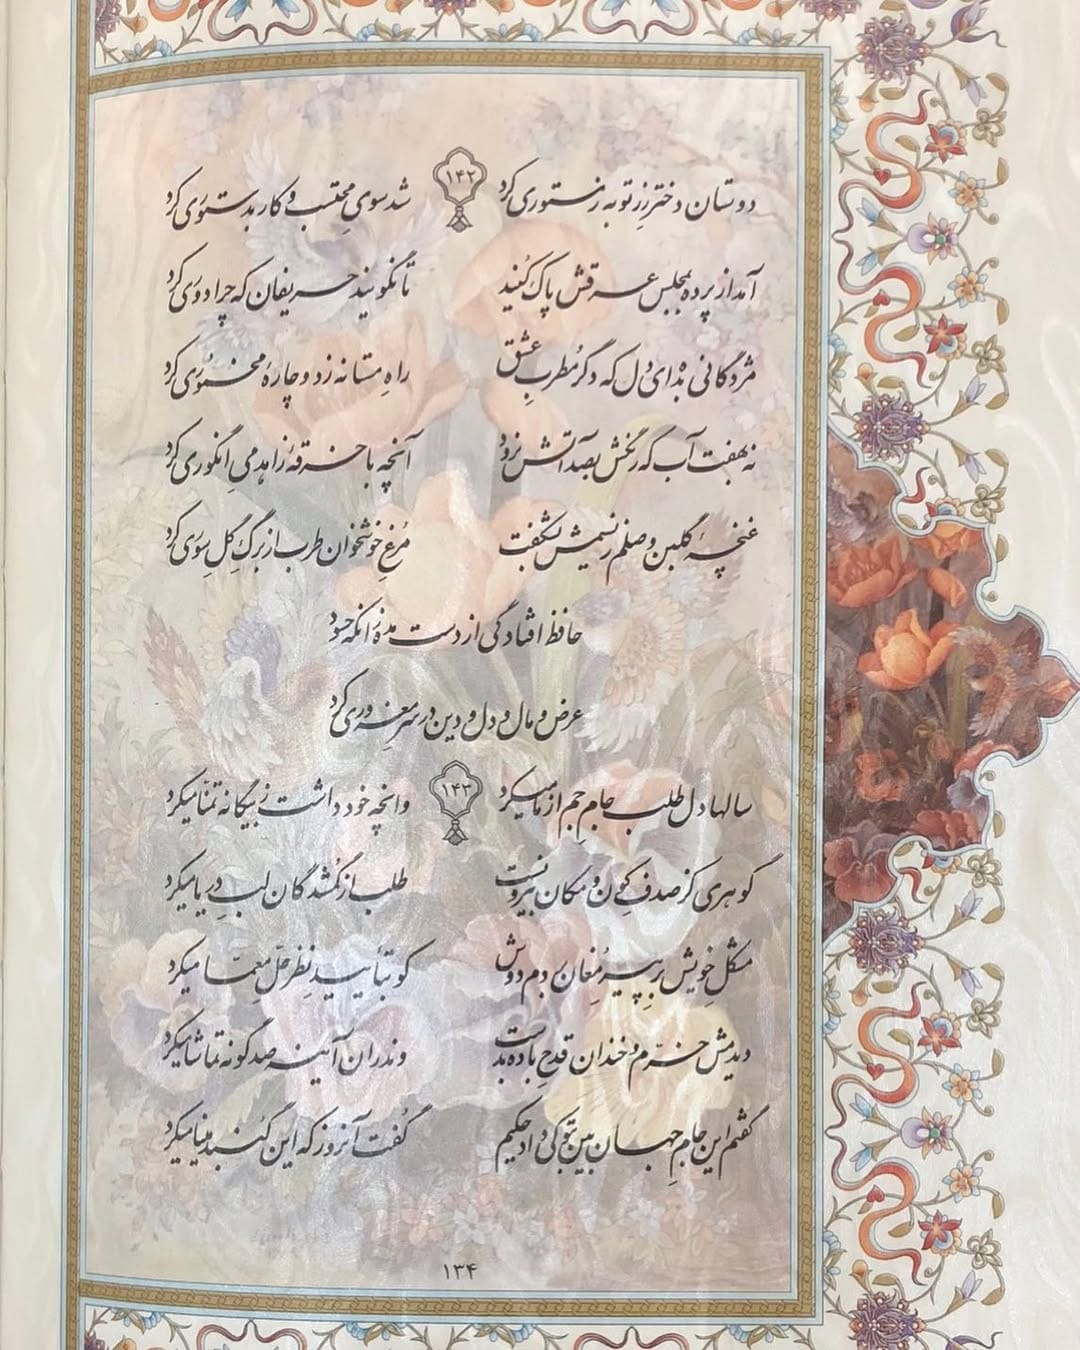 ۱۴۲
دوستان دختر رز توبه ز مستوری کرد شد سوی محتسب و کار بدستوری کرد
آمد از پرده بمجلس عرقش پاک کنید تا نگویند حریفان که چرا دوری کرد
مژدگانی بده ای دل که دگر مطرب عشق راهِ مستانه زد و چارهٔ مخموری کرد
نه بهفت آب که رنگش بصد آتش نرود آنچه با خرقهٔ زاهد میِ انگوری کرد
غنچهٔ گلبن وصلم ز نسیمش بشکفت مرغِ خوشخوان طرب از برگِ گلِ سوری کرد
حافظ افتادگی از دست مده زانکه حسود
عرض و مال و دل و دین در سرِ مغروری کرد
۱۴۳
سالها دل طلب جامِ جم از ما میکرد وانچه خود داشت ز بیگانه تمنّا میکرد
گوهری کز صدفِ کون و مکان بیرونست طلب از گمشدگان لبِ دریا میکرد
مشکلِ خویش برِ پیرِ مغان بردم دوش کو بتأییدِ نظر حلّ معمّا میکرد
دیدمش خرّم و خندان قدحِ باده بدست وندران آینه صد گونه تماشا میکرد
گفتم این جامِ جهان بین بتو کی داد حکیم گفت آنروز که این گنبد مینا میکرد
۱۳۴